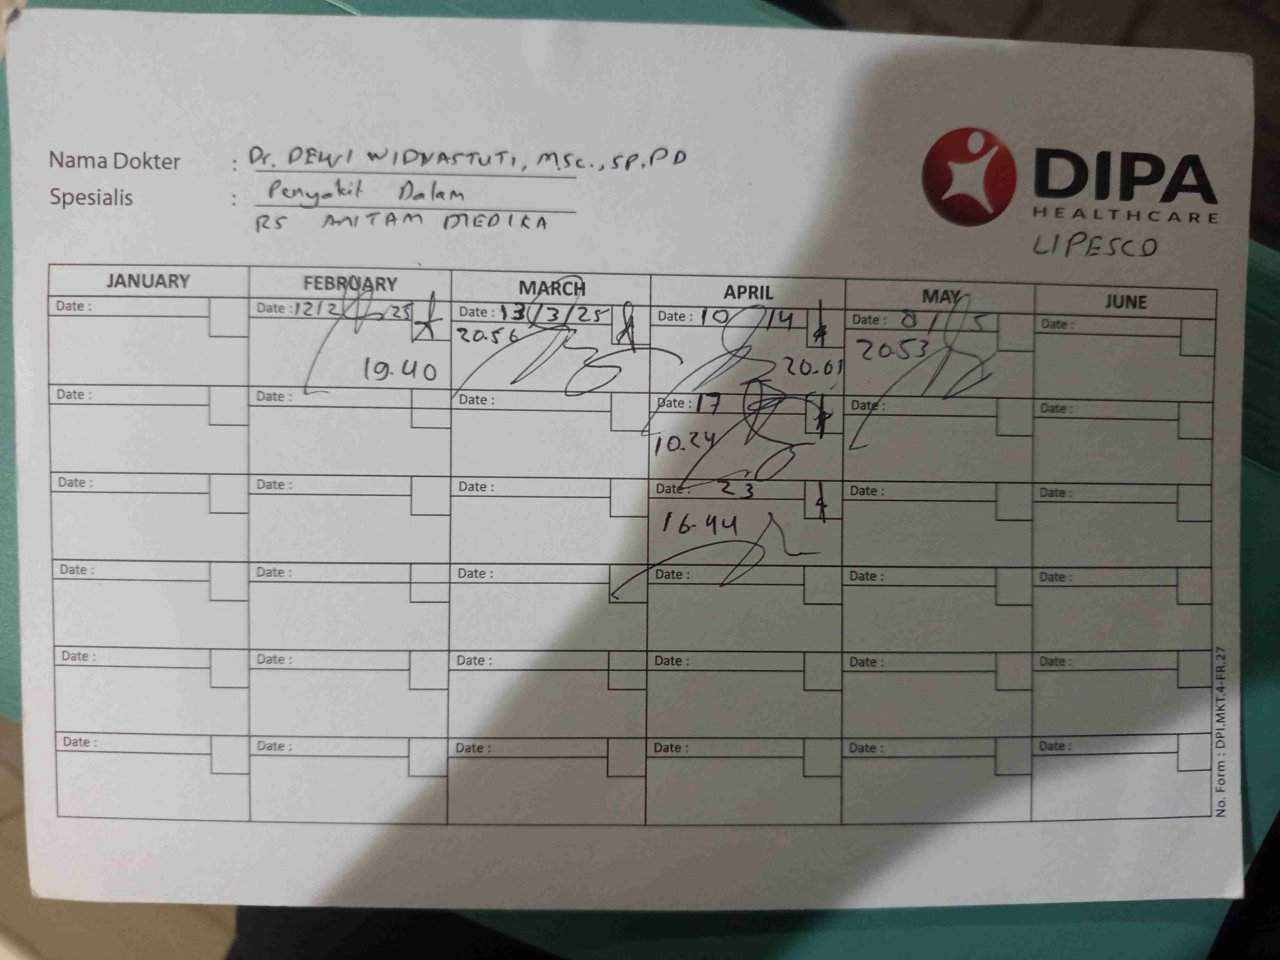 Nama Dokter : Dr. DEWI WIDYASTUTI, MSc., SP.PD
Spesialis : Penyakit Dalam
RS MITAM MEDIKA
DIPA
HEALTHCARE
LIPESCO
JANUARY FEBRUARY MARCH APRIL MAY JUNE
Date : Date : 12/2 25 Date : 13/3/25 Date : 10 /4 Date : 8/5 Date :
19.40 20.56 20.01 20.53
Date : Date : Date : Date : 17 Date : Date :
10.24
Date : Date : Date : Date : 23 Date : Date :
16.44
Date : Date : Date : Date : Date : Date :
Date : Date : Date : Date : Date : Date :
Date : Date : Date : Date : Date : Date :
No. Form : DPI.MKT.4-FR.27